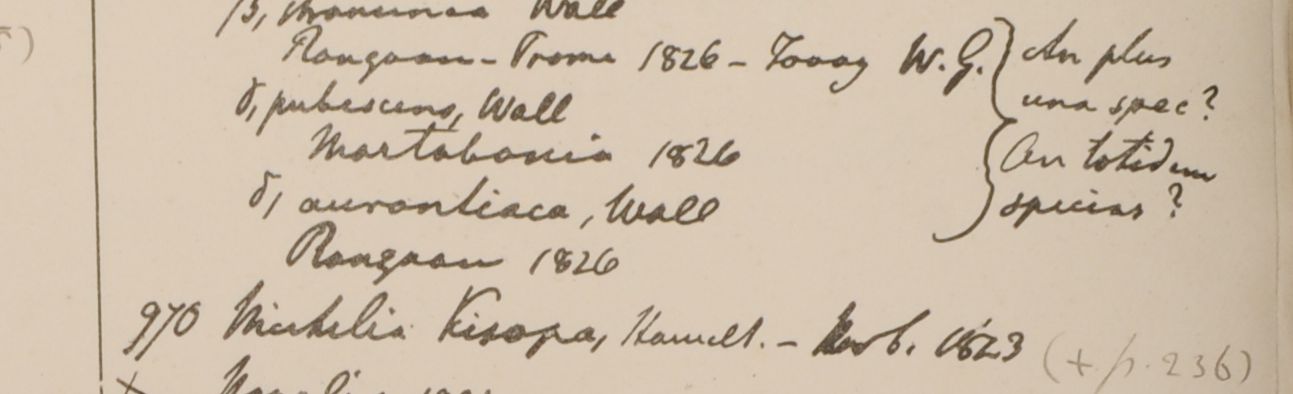 β, Wall
Rangoon - Prome 1826 - Tavoy W.G. } An plus
una spec?
γ, pubescens, Wall
Martabania 1826 } An totidem
δ, aurantiaca, Wall species?
Rangoon 1826
970 Michelia Kisopa, Hamilt. - 1823 (+ p. 236)